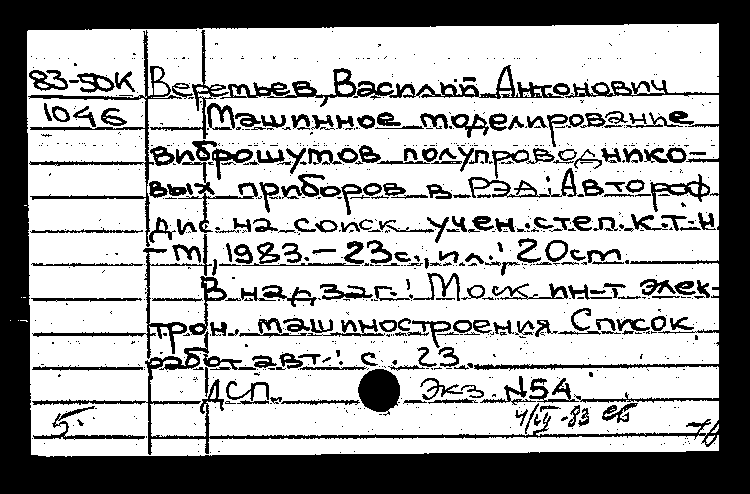 83-50К Веретьев, Василий Антонович
1046 Машинное моделирование
виброшумов полупроводнико-
вых приборов в РЭА: Автореф
дис. на соиск учен. степ. к.т.н
- М, 1983. - 23 с., ил.; 20 см.
В надзаг.: Моск. ин-т элек-
трон. машиностроения Список
работ авт.: с. 23.
ДСП. Экз. №54.
5.